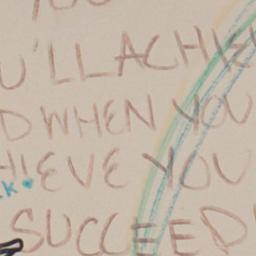 YOU
U'LL ACHIE
D WHEN YOU
HIEVE YOU
K
SUCCEED